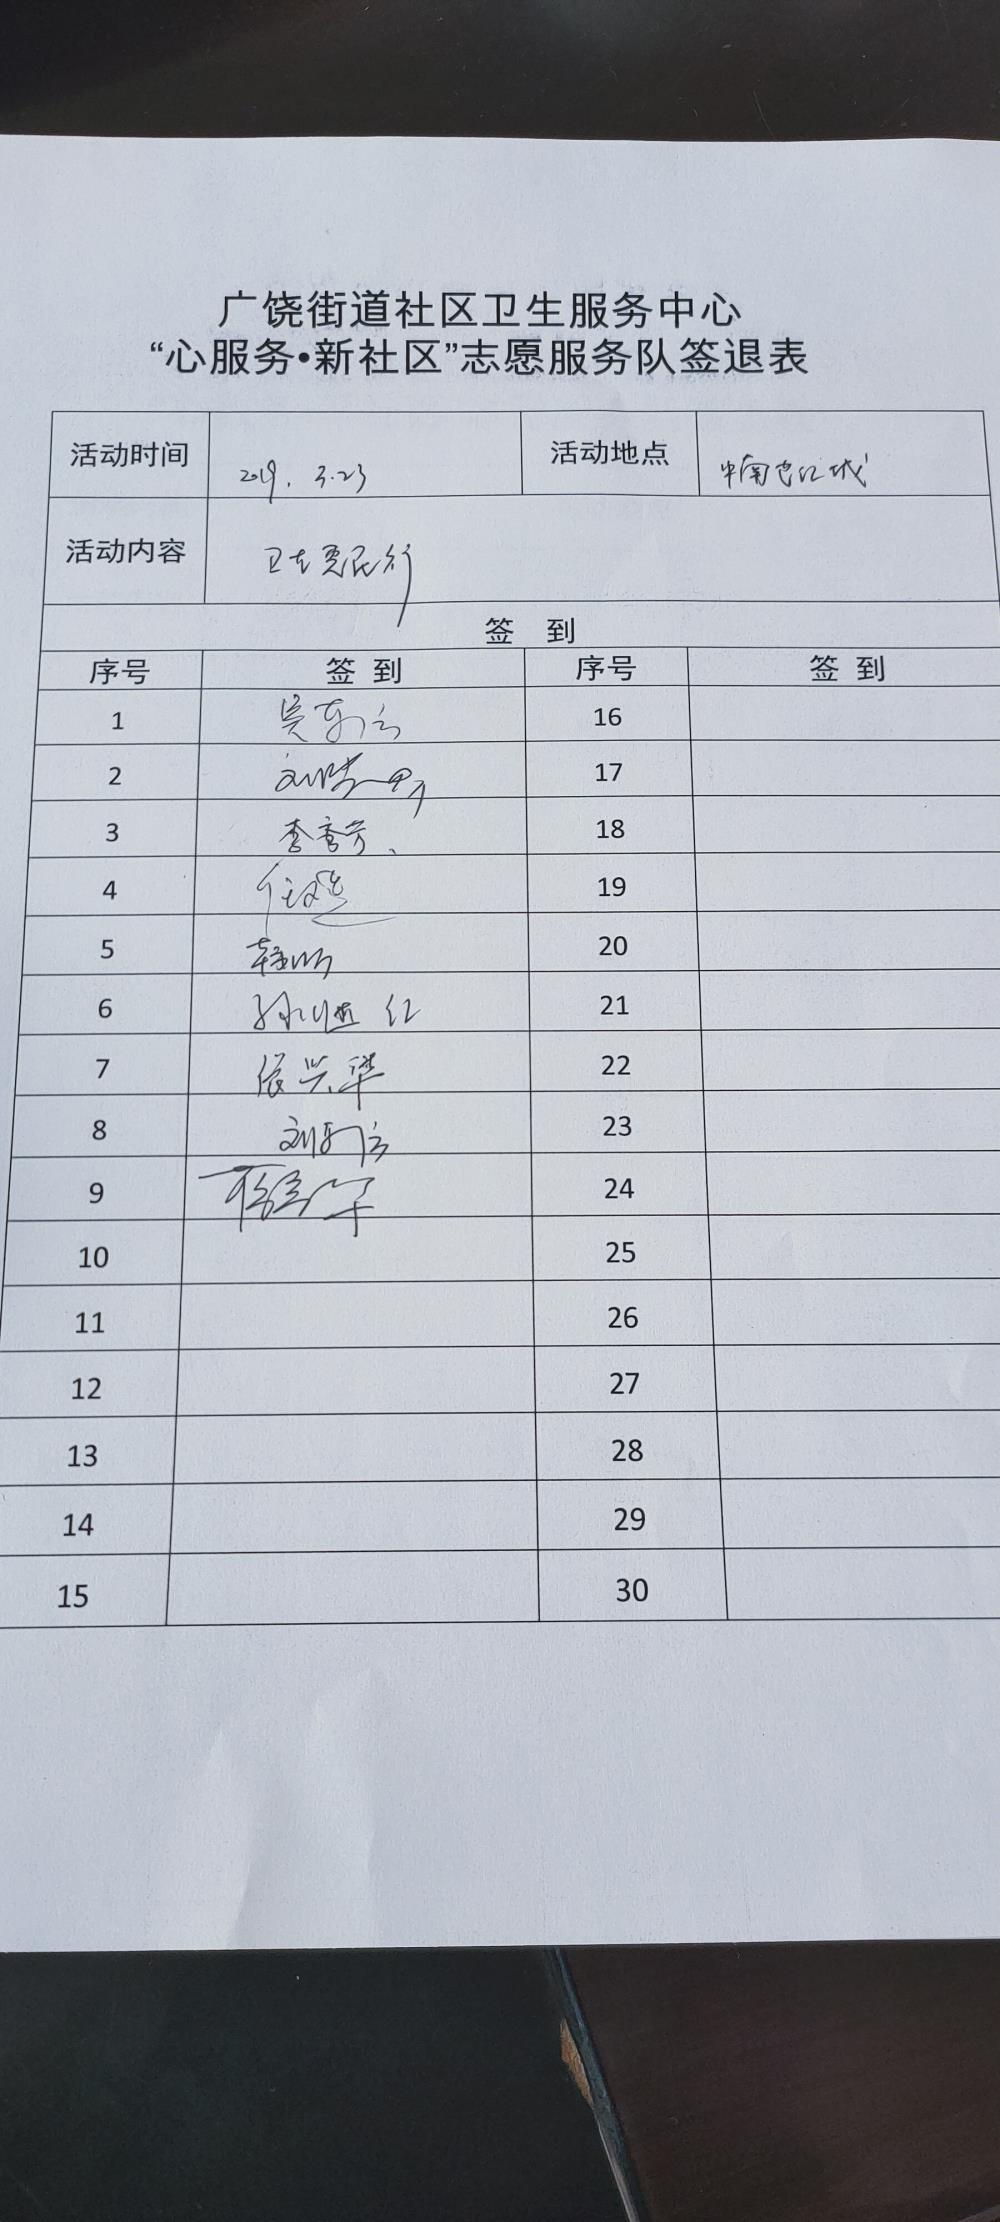 广饶街道社区卫生服务中心
“心服务•新社区”志愿服务队签退表
活动时间 2019. 3.23 活动地点 中南世纪城
活动内容 卫生惠民行
签 到
序号 签 到 序号 签 到
1 吴东云 16
2 刘 17
3 李秀芳、 18
4 任 19
5 韩 20
6 孙 红 21
7 张兴华 22
8 刘 云 23
9 24
10 25
11 26
12 27
13 28
14 29
15 30